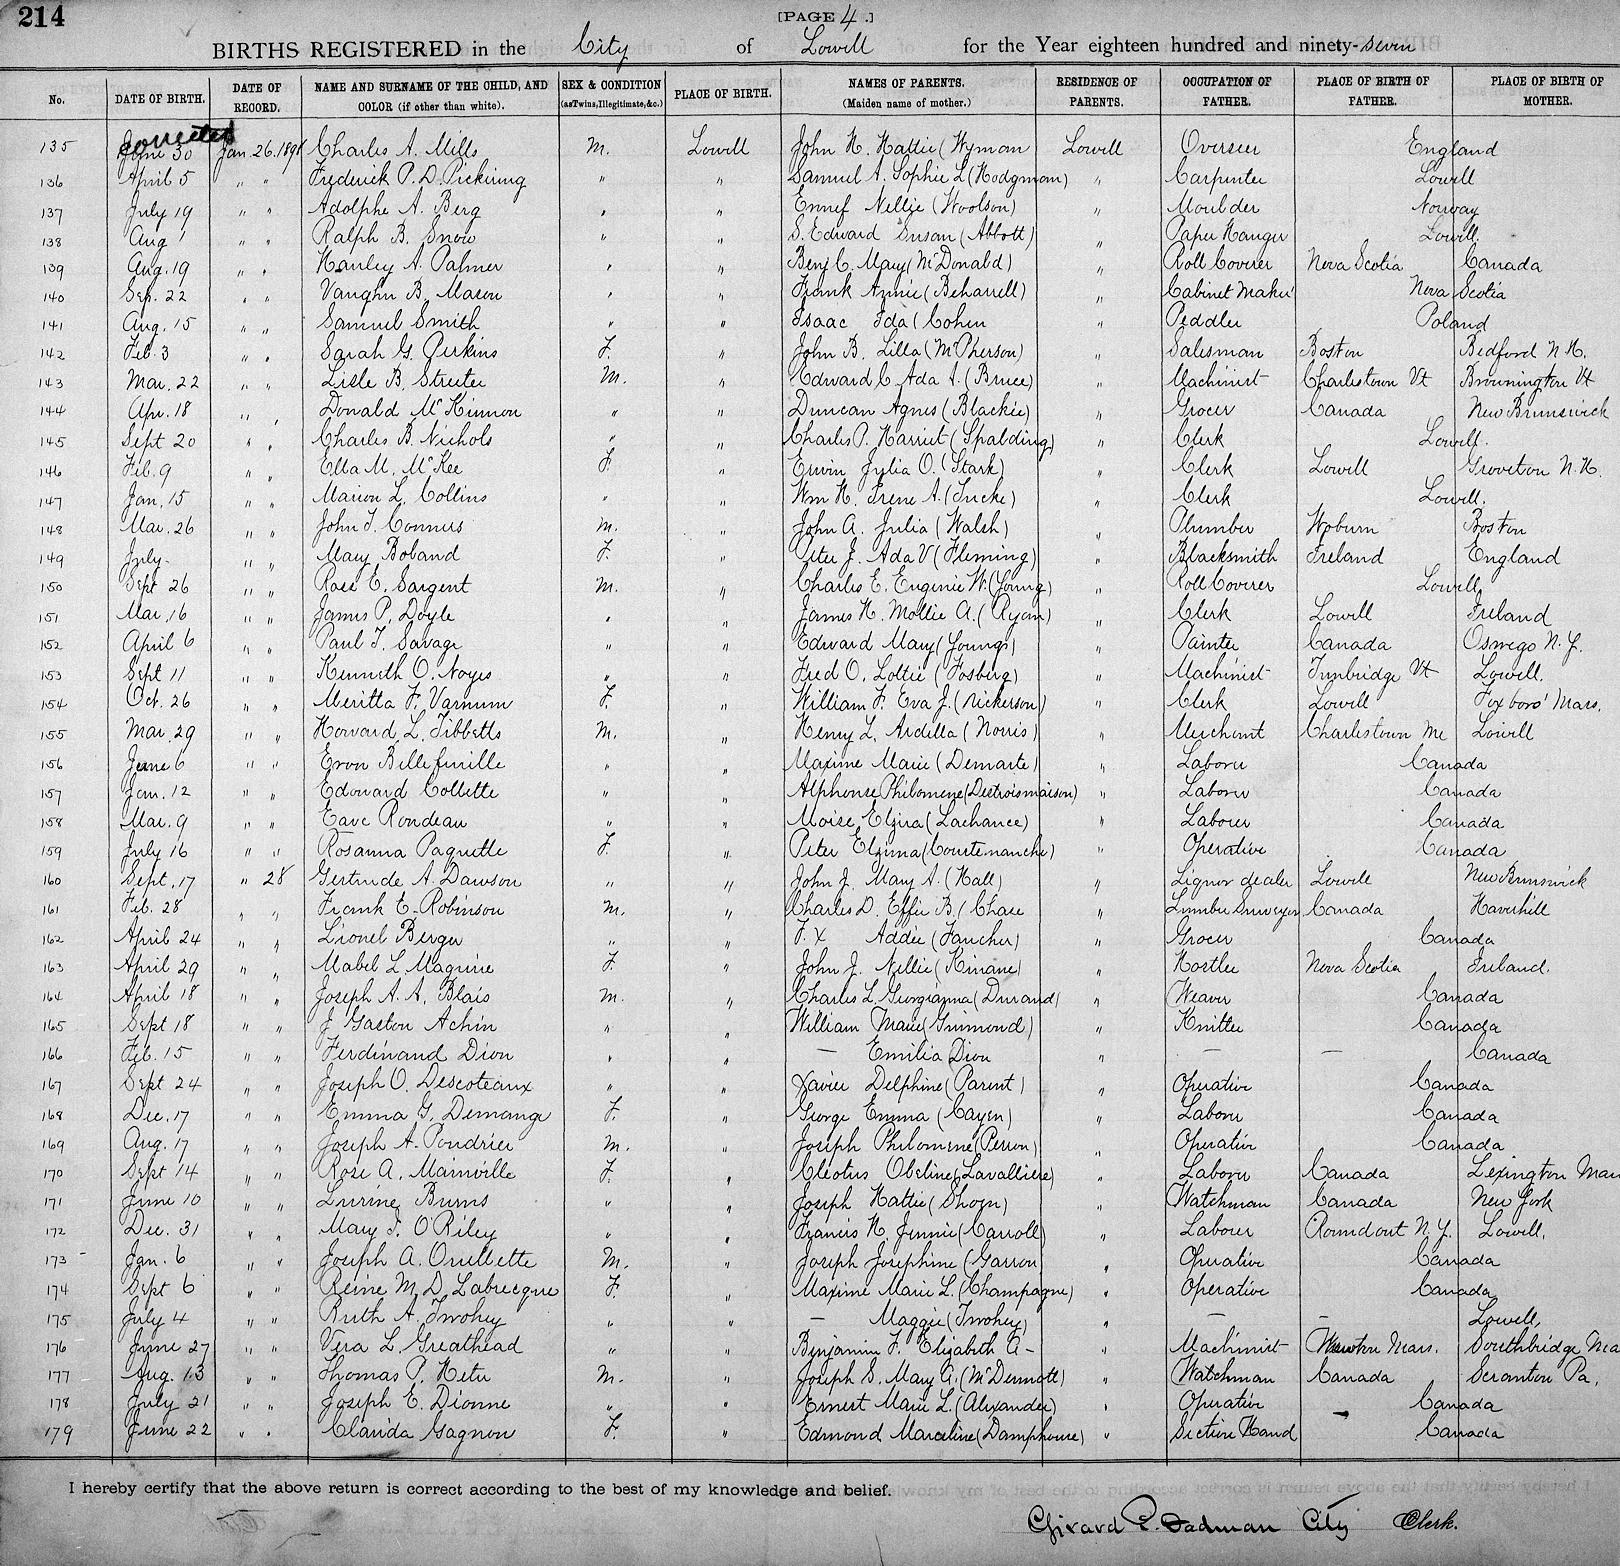 214
[PAGE 4.]
BIRTHS REGISTERED in the City of Lowell for the Year eighteen hundred and ninety-seven
No. DATE OF BIRTH. DATE OF RECORD. NAME AND SURNAME OF THE CHILD, AND COLOR (if other than white). SEX & CONDITION (as Twins, Illegitimate, &c.) PLACE OF BIRTH. NAMES OF PARENTS. (Maiden name of mother.) RESIDENCE OF PARENTS. OCCUPATION OF FATHER. PLACE OF BIRTH OF FATHER. PLACE OF BIRTH OF MOTHER.
corrected
135 June 30 Jan. 26. 1898 Charles A. Mills M. Lowell John H. Hattie (Wyman Lowell Overseer England
136 April 5 " " Frederick P. D. Pickering " " Samuel A. Sophie L (Hodgman) " Carpenter Lowell
137 July 19 " " Adolphe A. Berg " " Nellie (Woolson) " Moulder Norway
138 Aug 1 " " Ralph B. Snow " " S. Edward Susan (Abbott) " Paper Hanger Lowell.
139 Aug. 19 " " Hanley A. Palmer " " Benj C. Mary (McDonald) " Roll Coverer Nova Scotia Canada
140 Sep. 22 " " Vaughn B. Mason " " Frank Annie (Beharrell) " Cabinet Maker Nova Scotia
141 Aug. 15 " " Samuel Smith " " Isaac Ida (Cohen " Peddler Poland
142 Feb. 3 " " Sarah G. Perkins F. " John B. Lilla (McPherson) " Salesman Boston Bedford N.H.
143 Mar. 22 " " Lisle B. Streeter M. " Edward C. Ada A. (Bruce) " Machinist Charlestown Vt Brownington Vt
144 Apr. 18 " " Donald McKinnon " " Duncan Agnes (Blackie) " Grocer Canada New Brunswick
145 Sept 20 " " Charles B. Nichols " " Charles P. Harriet (Spalding) " Clerk Lowell.
146 Feb. 9 " " Ella M. McKee F. " Erwin Julia O. (Stark) " Clerk Lowell Groveton N.H.
147 Jan. 15 " " Marion L. Collins " " Wm H. Irene A. (Tucke) " Clerk Lowell.
148 Mar. 26 " " John T. Connors M. " John A. Julia (Walsh) " Plumber Woburn Boston
149 July. " " Mary Boland F. " Peter J. Ada V (Fleming) " Blacksmith Ireland England
150 Sept 26 " " Rose E. Sargent M. " Charles E. Eugenie W. (Young) " Roll Coverer Lowell
151 Mar. 16 " " James P. Doyle " " James H. Mollie A. (Ryan) " Clerk Lowell Ireland
152 April 6 " " Paul T. Savage " " Edward Mary (Youngs) " Painter Canada Oswego N.Y.
153 Sept 11 " " Kenneth O. Noyes " " Fred O. Lottie (Fosberg) " Machinist Tunbridge Vt Lowell.
154 Oct. 26 " " Meritta F. Varnum F. " William F. Eva J. (Nickerson) " Clerk Lowell Foxboro' Mass.
155 Mar. 29 " " Howard L. Tibbetts M. " Henry L. Ardella (Norris) " Merchant Charlestown Me Lowell
156 June 6 " " " " Maxime Marie (Demarte) " Laborer Canada
157 Jan. 12 " " Edouard Collette " " Alphonse Philomene (Destroismaison) " Laborer Canada
158 Mar. 9 " " Rondeau " " Moise Elzira (Lachance) " Laborer Canada
159 July 16 " " Rosanna Paquette F. " Peter Elzina (Courtemanche) " Operative Canada
160 Sept. 17 " 28 Gertrude A. Dawson " " John J. Mary A. (Hall) " Liquor dealer Lowell New Brunswick
161 Feb. 28 " " Frank E. Robinson M. " Charles D. Effie B. (Chase " Lumber Surveyor Canada Haverhill
162 April 24 " " Lionel Berger " " F. X Addie (Faucher) " Grocer Canada
163 April 29 " " Mabel L Maguire F. " John J. Nellie (Kinane) " Hostler Nova Scotia Ireland.
164 April 18 " " Joseph A. A. Blais M. " Charles L. Georgianna (Durand) " Weaver Canada
165 Sept 18 " " J Gaston Achin " " William Marie (Guimond) " Knitter Canada
166 Feb. 15 " " Ferdinand Dion " " — Emilia Dion " — — Canada
167 Sept 24 " " Joseph O. Descoteaux " " Xavier Delphine (Parent) " Operative Canada
168 Dec. 17 " " Emma G. Demange F. " George Emma (Cayer) " Laborer Canada
169 Aug. 17 " " Joseph A. Poudrier M. " Joseph Philomene (Perron) " Operative Canada
170 Sept 14 " " Rose A. Mainville F. " Cleotus Obeline (Lavalliere) " Laborer Canada Lexington Mass
171 June 10 " " Lurine Burns " " Joseph Hattie (Shorn) " Watchman Canada New York
172 Dec. 31 " " Mary T. O'Riley " " Francis H. Jennie (Carroll) " Laborer Roundout N.Y. Lowell.
173 Jan. 6 " " Joseph A. Ouellette M. " Joseph Josephine (Garron " Operative Canada
174 Sept 6 " " Reine M. D. Labrecque F. " Maxime Marie L. (Champagne) " Operative Canada
175 July 4 " " Ruth A. Twohey " " — Maggie (Twohey) " — — Lowell,
176 June 27 " " Vera L. Greathead " " Benjamin F. Elizabeth A — " Machinist Newton Mass. Southbridge Ma
177 Aug. 13 " " Thomas P. Hetu M. " Joseph S. Mary A. (McDermott) " Watchman Canada Scranton Pa.
178 July 21 " " Joseph E. Dionne " " Ernest Marie L. (Alexander) " Operative Canada
179 June 22 " " Clarida Gagnon F. " Edmond Marceline (Damphouse) " Section Hand Canada
I hereby certify that the above return is correct according to the best of my knowledge and belief.
Girard P. Dadman City Clerk.